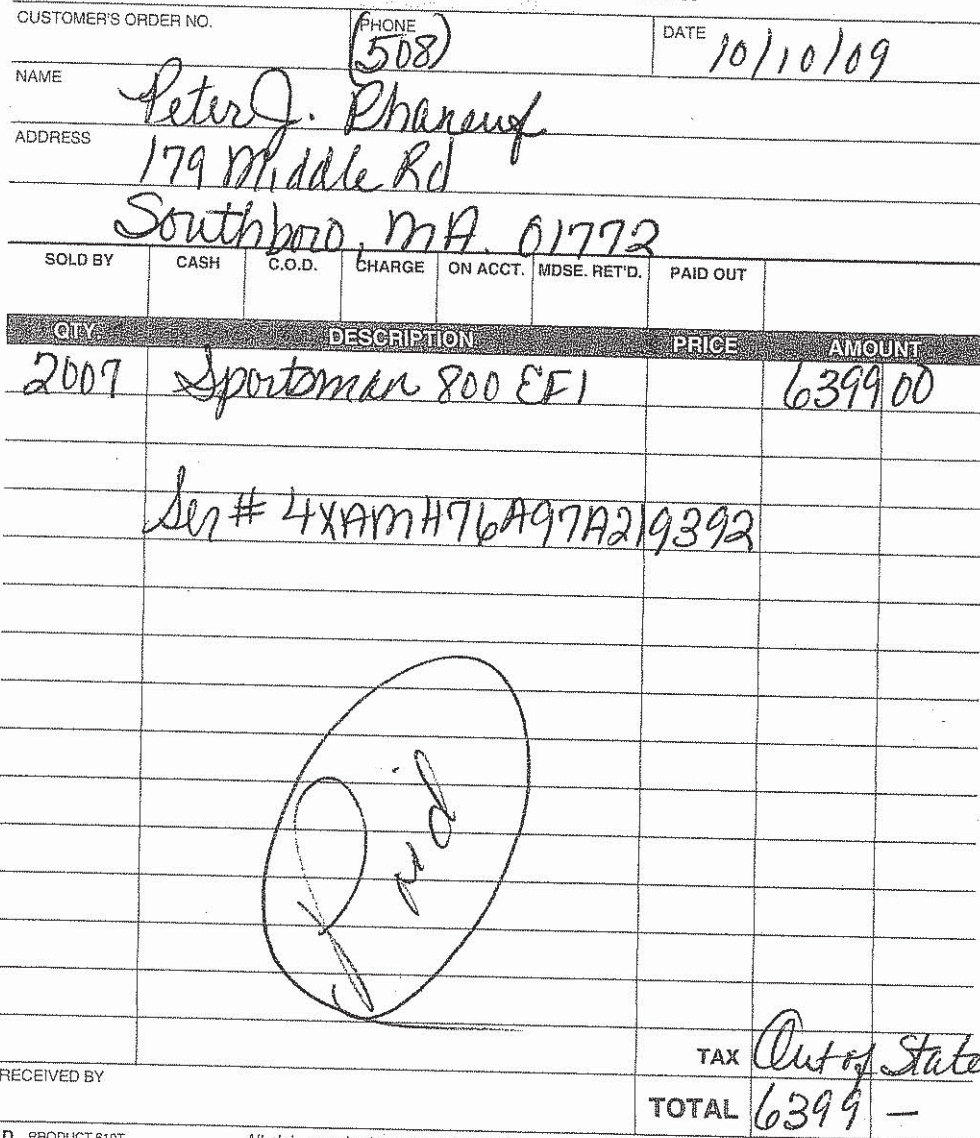 CUSTOMER'S ORDER NO. PHONE (508) DATE 10/10/09
NAME Peter J. Phaneuf
ADDRESS 179 Middle Rd
Southboro, MA. 01772
SOLD BY CASH C.O.D. CHARGE ON ACCT. MDSE. RET'D. PAID OUT
QTY. DESCRIPTION PRICE AMOUNT
2007 Sportsman 800 EFI 6399 00
Ser # 4XAMH76A97A219392
Paid
TAX Out of State
RECEIVED BY
TOTAL 6399 —
PRODUCT 610T